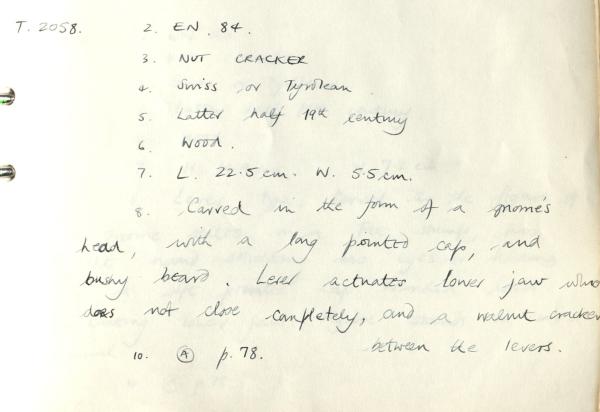 T. 2058. 2. EN. 84.
3. NUT CRACKER
4. Swiss or Tyrolean
5. Latter half 19th century
6. Wood.
7. L. 22.5 cm. W. 5.5 cm.
8. Carved in the form of a gnome's
head, with a long pointed cap, and
bushy beard. Lever actuates lower jaw
does not close completely, and a walnut cracker
between the levers.
10. (A) p. 78.